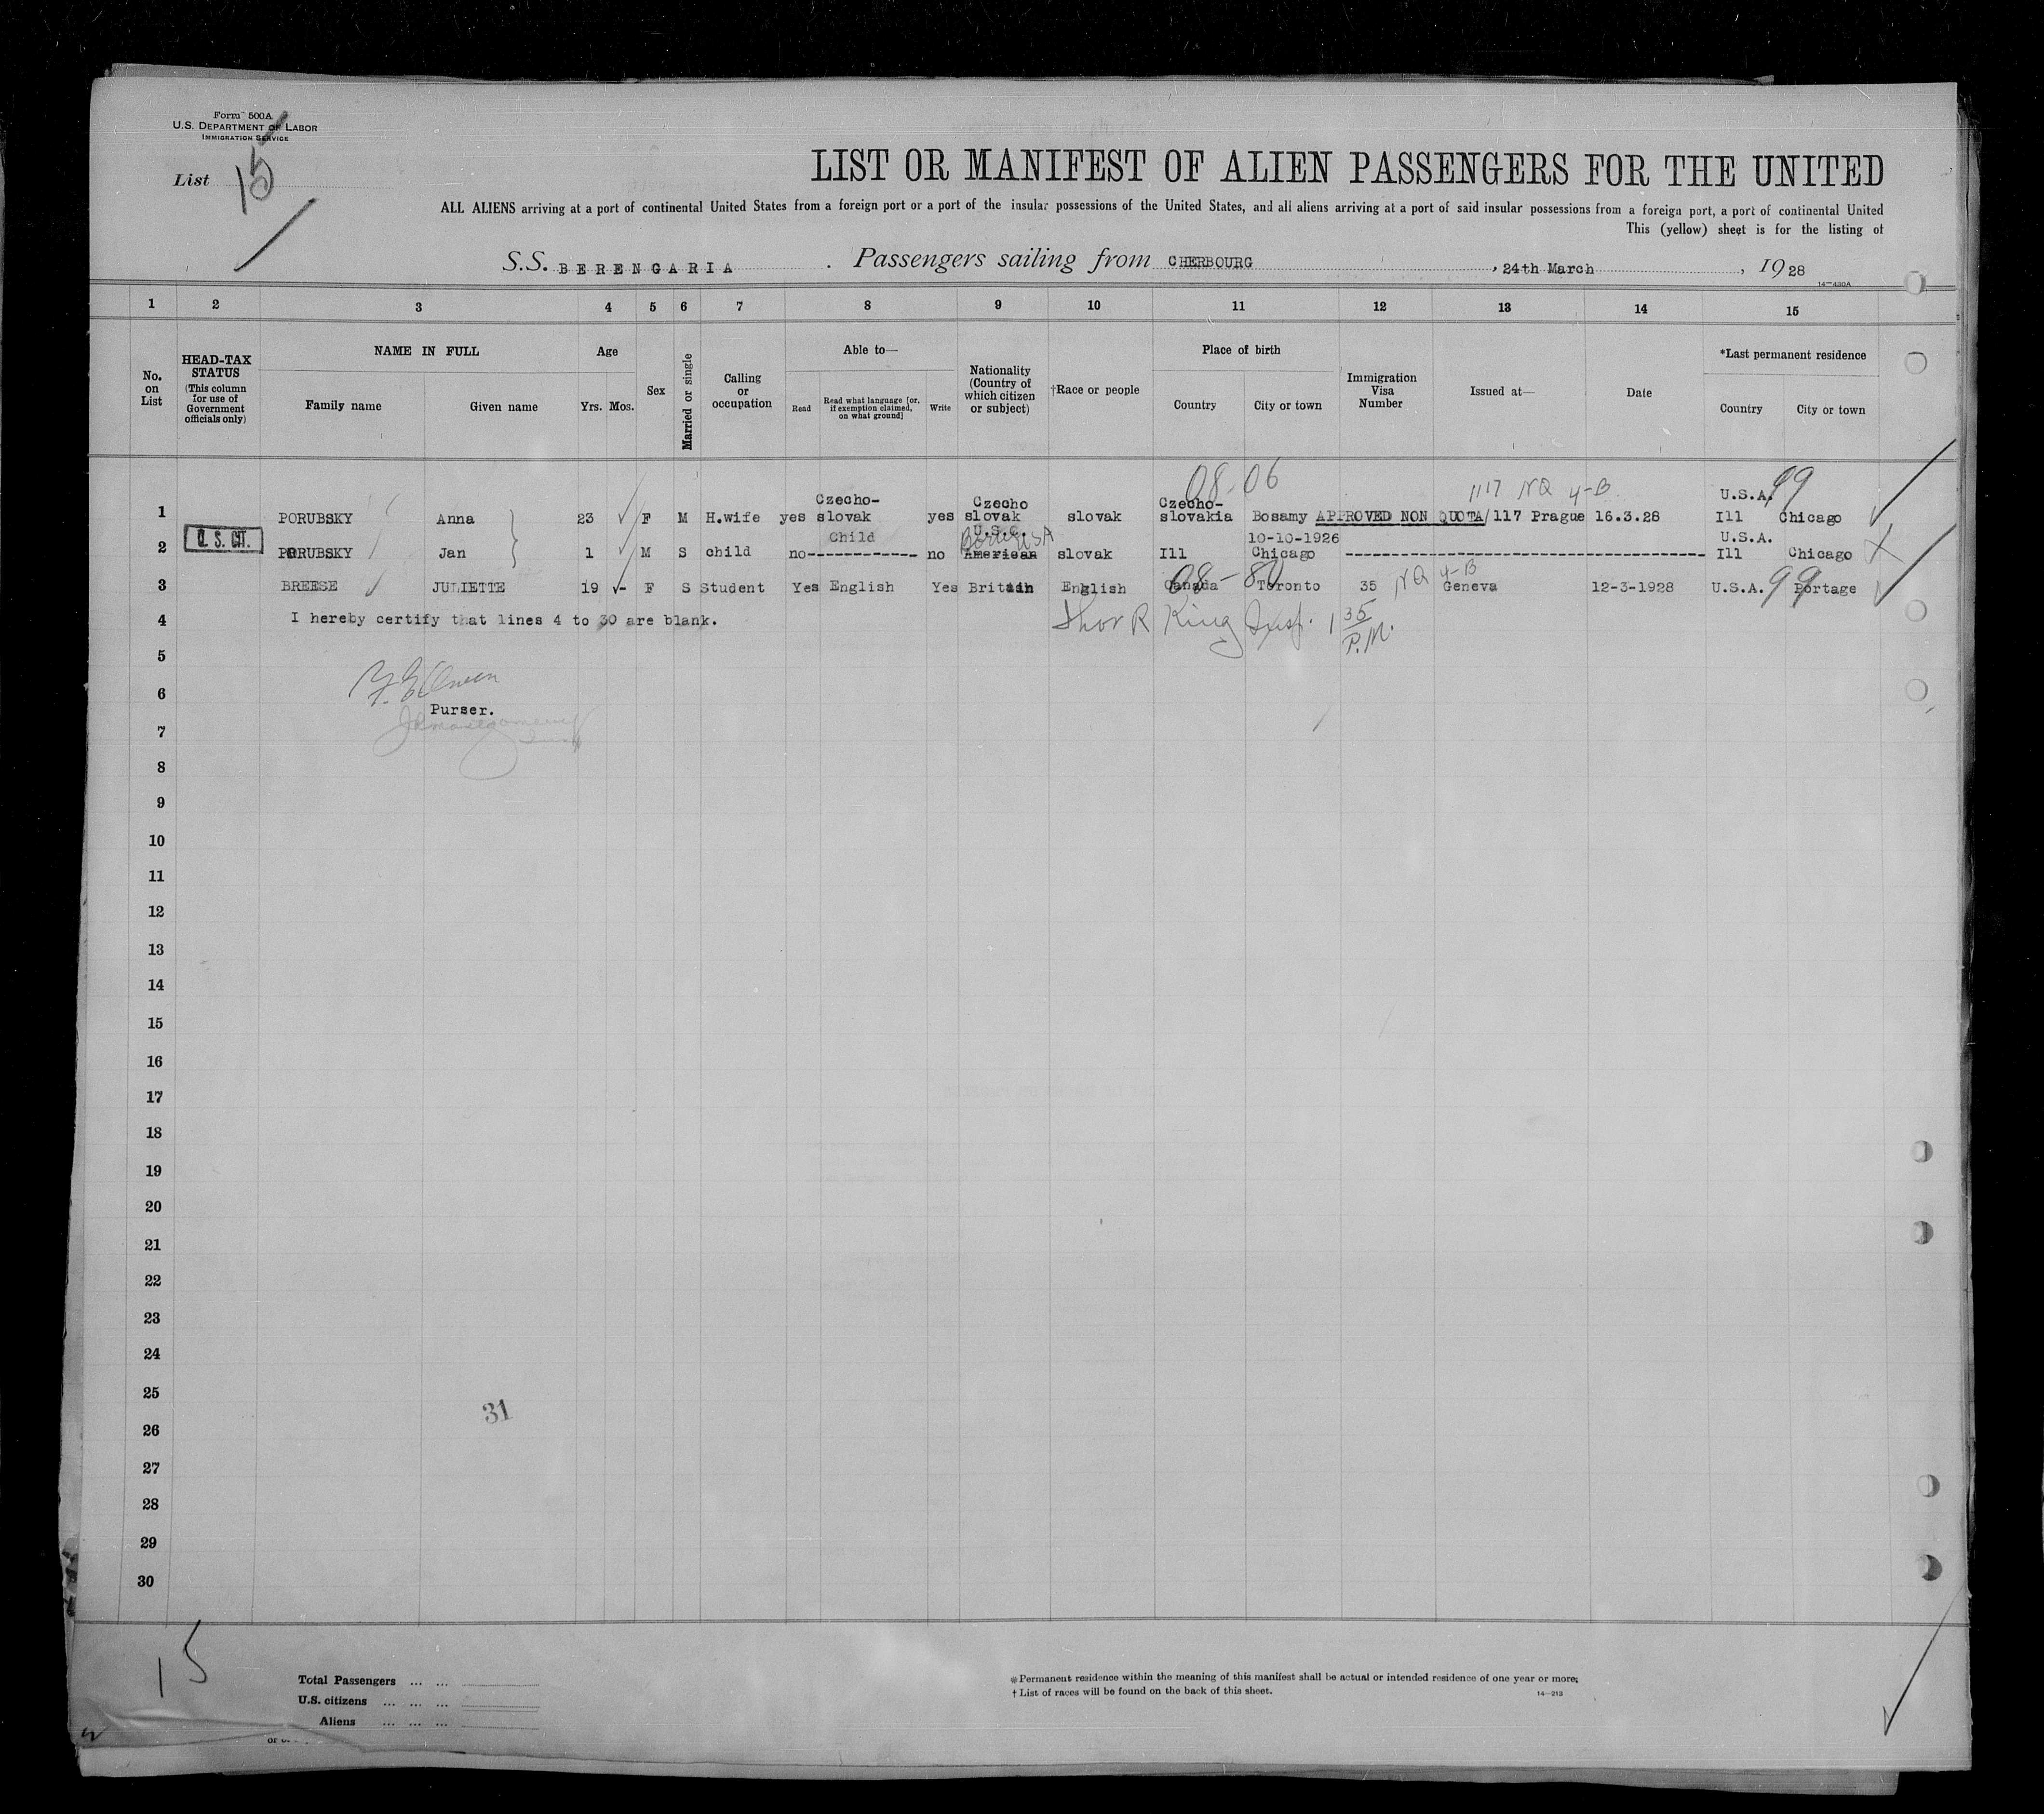 Form 500A
U.S. DEPARTMENT OF LABOR
IMMIGRATION SERVICE
List 15
LIST OR MANIFEST OF ALIEN PASSENGERS FOR THE UNITED
ALL ALIENS arriving at a port of continental United States from a foreign port or a port of the insular possessions of the United States, and all aliens arriving at a port of said insular possessions from a foreign port, a port of continental United
This (yellow) sheet is for the listing of
S.S. BERENGARIA . Passengers sailing from CHERBOURG , 24th March , 1928
14-430A
1 2 3 4 5 6 7 8 9 10 11 12 13 14 15
No. on List
HEAD-TAX STATUS (This column for use of Government officials only)
NAME IN FULL
Family name Given name
Age
Yrs. Mos.
Sex
Married or single
Calling or occupation
Able to—
Read
Read what language [or, if exemption claimed, on what ground]
Write
Nationality (Country of which citizen or subject)
†Race or people
Place of birth
Country City or town
Immigration Visa Number
Issued at—
Date
*Last permanent residence
Country City or town
08-06 1117 NQ 4-B 99
Czecho- Czecho Czecho- U.S.A.
1 PORUBSKY Anna 23 F M H.wife yes slovak yes slovak slovak slovakia Bosamy APPROVED NON QUOTA/117 Prague 16.3.28 Ill Chicago
U. S. CIT. Child U.S.C. Born USA 10-10-1926 U.S.A.
2 PORUBSKY Jan 1 M S child no------------ no American slovak Ill Chicago ------------------------------------ Ill Chicago
08-80 NQ 4-B 99
3 BREESE JULIETTE 19 F S Student Yes English Yes Britain English Canada Toronto 35 Geneva 12-3-1928 U.S.A. Portage
4 I hereby certify that lines 4 to 30 are blank. Thor R King Insp. 1 35 P.M.
5
6
Purser.
7
8
9
10
11
12
13
14
15
16
17
18
19
20
21
22
23
24
25
31
26
27
28
29
30
15
Total Passengers ... ...
U.S. citizens ... ... ...
Aliens ... ... ...
*Permanent residence within the meaning of this manifest shall be actual or intended residence of one year or more.
†List of races will be found on the back of this sheet.
14-213